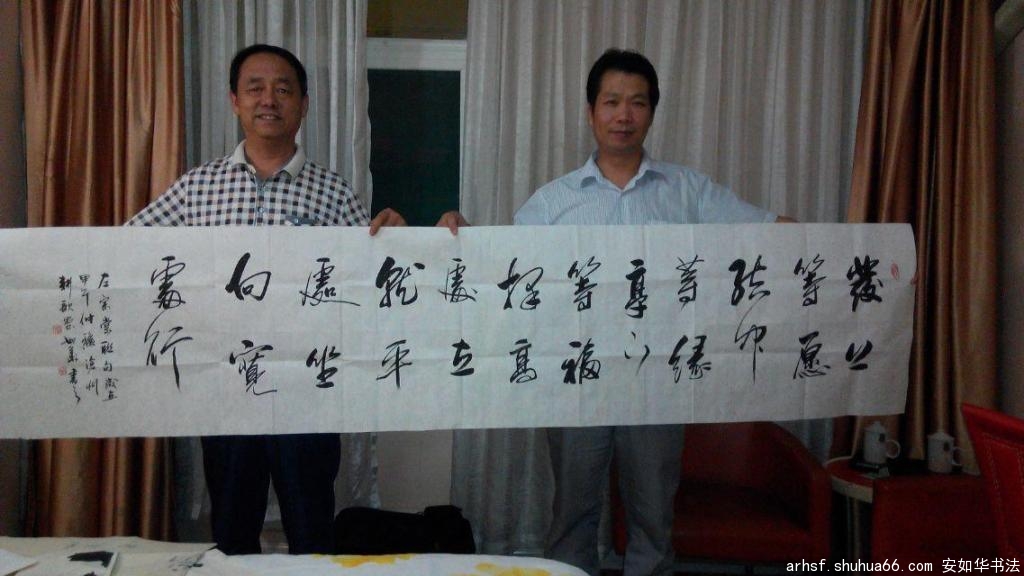 發上
等愿
結中
等緣
享下
等福
择高
處立
就平
處坐
向寬
處行
左宗棠联句
甲午仲 沧州
书
arhsf.shuhua66.com 安如华书法